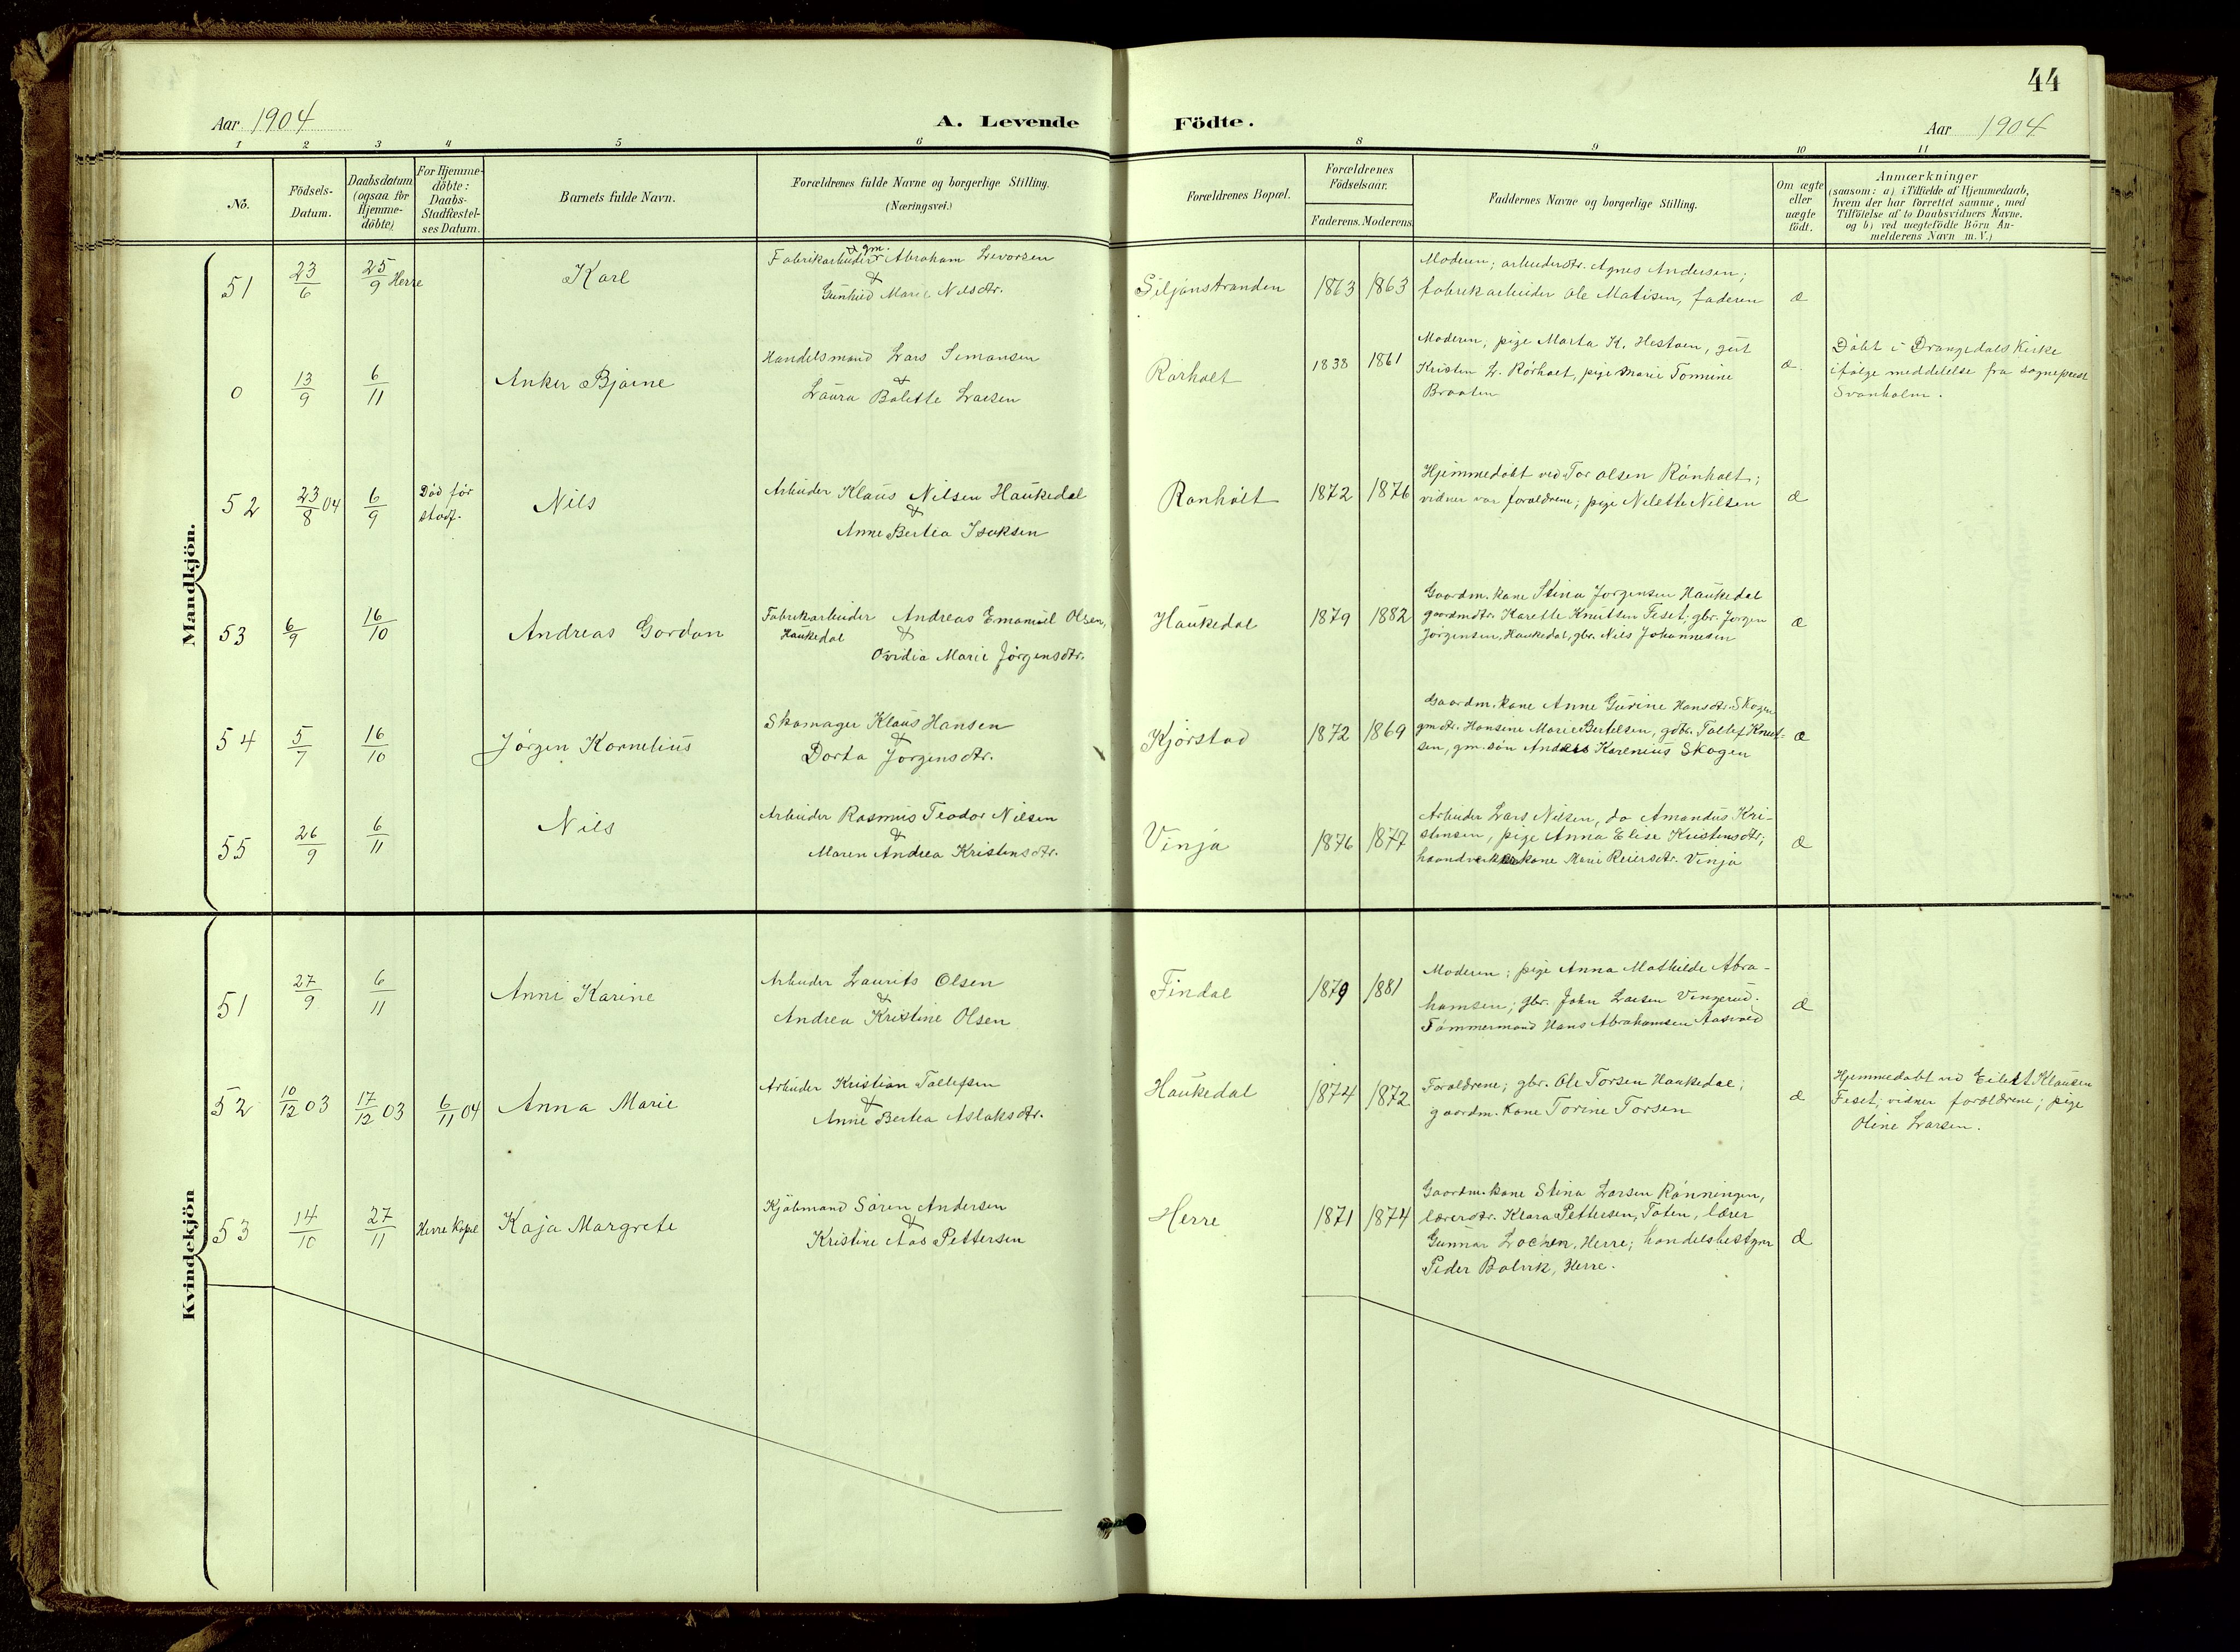 44
Aar 1904
A. Levende Födte.
Aar 1904
1 2 3 4 5 6 8 9 10 11
No.
Födsels-
Datum.
Daabsdatum
(ogsaa for
Hjemme-
döbte)
For Hjemme-
döbte:
Daabs-
Stadfæstel-
ses Datum.
Barnets fulde Navn.
Forældrenes fulde Navne og borgerlige Stilling.
(Næringsvei.)
Forældrenes Bopæl.
Forældrenes
Födselsaar.
Faderens. Moderens
Faddernes Navne og borgerlige Stilling.
Om ægte
eller
uægte
födt.
Anmærkninger
(saasom: a) i Tilfælde af Hjemmedaab,
hvem der har forrettet samme, med
Tilföielse af to Daabsvidners Navne.
og b) ved uægtefödte Börn An-
melderens Navn m. V.)
Mandkjön.
51
23/6
25/9 Herre
Karl
& gm.
Fabrikarbeider Abraham Levorsen
&
Gunhild Marie Nilsdtr.
Siljanstranden
1863
1863
Moderen; arbeiderdtr. Agnes Andersen;
fabrikarbeider Ole Matisen, faderen
æ
0
13/9
6/11
Anker Bjarne
Handelsmand Lars Simonsen
&
Laura Bolette Larsen
Rørholt
1838
1861
Moderen, pige Marta K. Hestøen, gut
Kristen L. Rörholt, pige Marie Tomine
Braaten
æ.
Döbt i Drangedals Kirke
ifølge meddelelse fra sogneprest
Svanholm.
52
23/8 04
6/9
Död för
stadf.
Nils
Arbeider Klaus Nilsen Haukedal
&
Anne Bertea Isaksen
Rönholt
1872
1876
Hjemmedöbt ved Tor Olsen Rönholt;
vidner var forældrene; pige Nilette Nilsen
æ
53
6/9
16/10
Andreas Gordon
Fabrikarbeider Andreas Emanuel Olsen,
Haukedal &
Ovidia Marie Jørgensdtr.
Haukedal
1879
1882
Gaardm. kone Stina Jørgensen Haukedal
gaardmdtr. Karette Knutsen Feset. gbr. Jørgen
Jørgensen, Haukedal, gbr. Nils Johannesen
æ
54
5/7
16/10
Jørgen Kornelius
Skomager Klaus Hansen
&
Dorta Jørgensdtr.
Kjørstad
1872
1869
Gaardm. kone Anne Gurine Hansdtr. Skogen
gmdtr. Hansine Marie Bertelsen, gdbr. Tollef Knut-
sen, gm. søn Anders Karenius Skogen
æ
55
26/9
6/11
Nils
Arbeider Rasmus Teodor Nilsen
&
Maren Andrea Kristensdtr.
Vinja
1876
1877
Arbeider Lars Nilsen, do Amandus Kri-
stensen, pige Anna Elise Kristensdtr;
haandverkerkone Marie Reiersdtr. Vinja
æ
Kvindekjön
51
27/9
6/11
Anni Karine
Arbeider Laurits Olsen
&
Andrea Kristine Olsen
Findal
1879
1881
Moderen; pige Anna Mathilde Abra-
hamsen; gbr. John Larsen Vingerud.
Tömmermand Hans Abrahamsen Aasvold
æ
52
10/12 03
17/12 03
6/11 04
Anna Marie
Arbeider Kristian Tollefsen
&
Anne Bertea Aslaksdtr.
Haukedal
1874
1872
Forældrene; gbr. Ole Torsen Haukedal;
gaardm. kone Torine Torsen
æ
Hjemmedøbt ved Eilert Klausen
Feset; vidner forældrene; pige
Oline Larsen.
53
14/10
27/11
Herre Kapel
Kaja Margrete
Kjöbmand Sören Andersen
&
Kristine Aas Pettersen
Herre
1871
1874
Gaardm. kone Stina Larsen Rönningen,
lærerdtr. Klara Pettersen, Toten, lærer
Gunnar Lochen, Herre; handelsbestyrer
Peder Bolvik, Herre.
æ